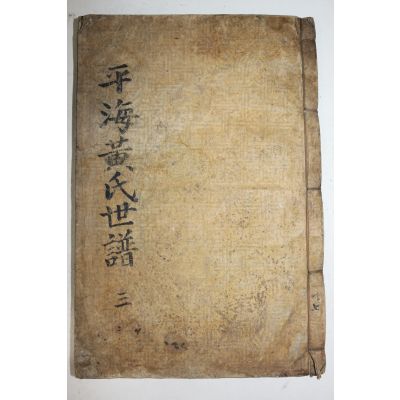 平海黃氏世譜
三